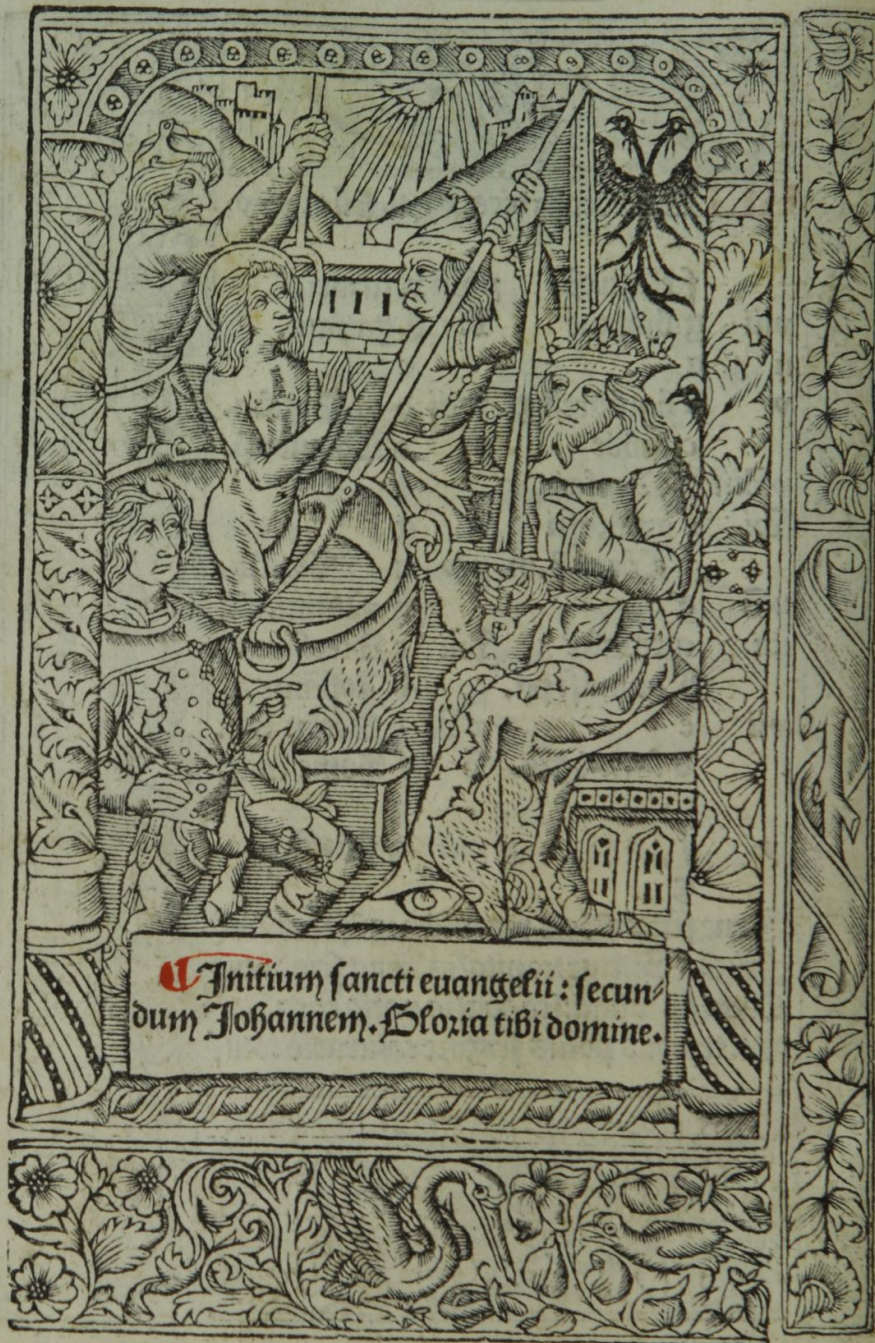 ¶ Initium sancti euangelii: secun⸗
dum Johannem. Gloria tibi domine.